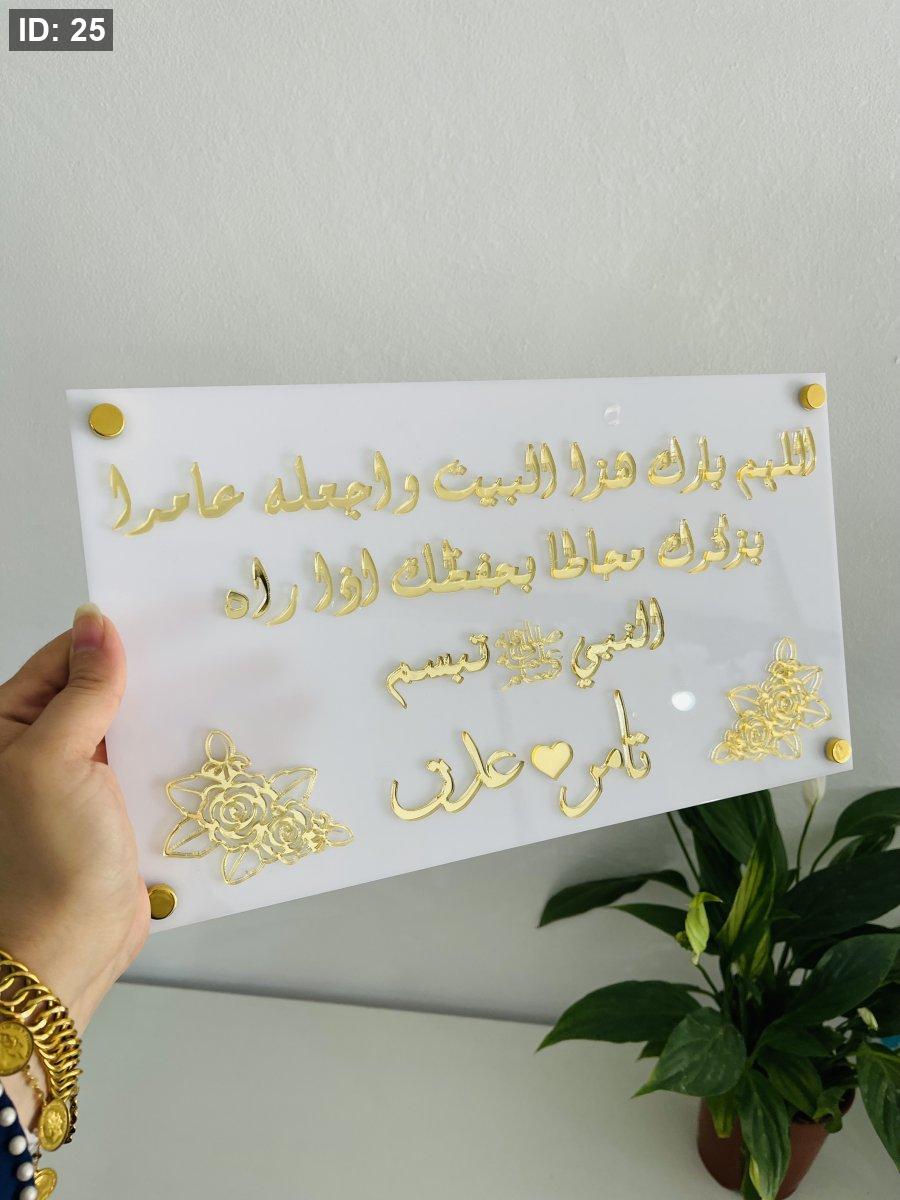 ID: 25
اللهم بارك هذا البيت واجعله عامرا
بذكرك محاطا بحفظك اذا راه
النبي ﷺ تبسم
تامر علا